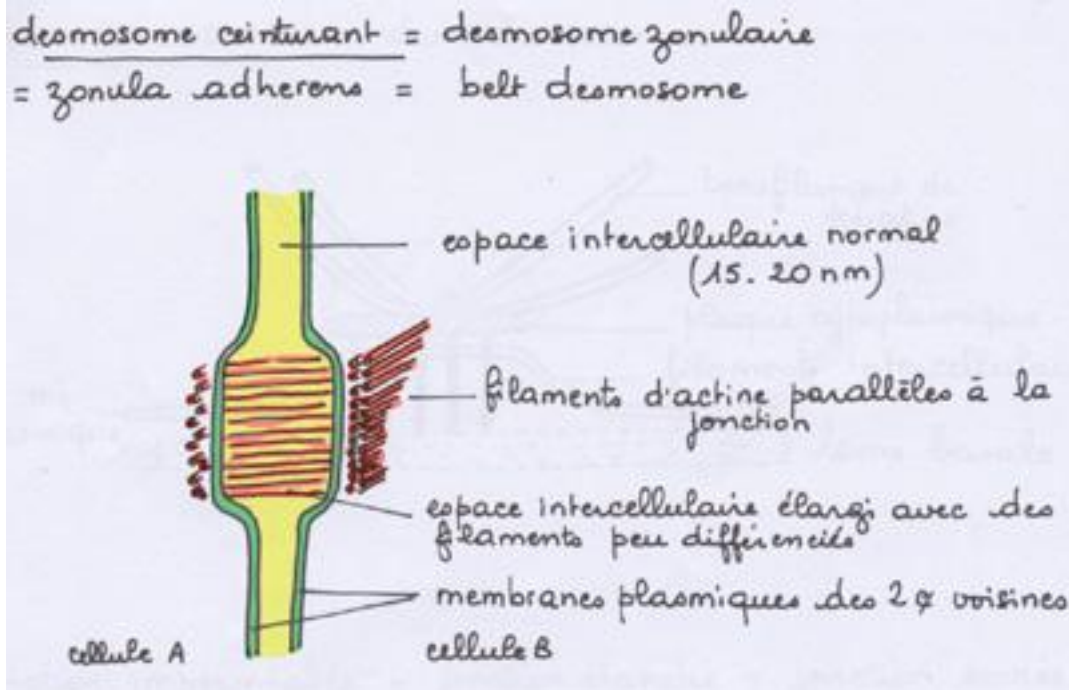 desmosome ceinturant = desmosome zonulaire
= zonula adherens = belt desmosome
espace intercellulaire normal
(15.20 nm)
filaments d'actine parallèles à la
jonction
espace intercellulaire élargi avec des
filaments peu différenciés
membranes plasmiques des 2 ¢ voisines
cellule A
cellule B